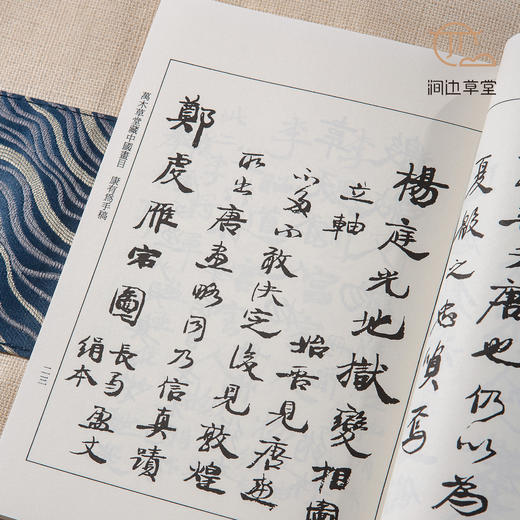 澗边草堂
唐也仍以為
夏殷之忠質焉
楊庭光地獄變相圖
立軸
始吾見唐畫
不敢決定後見敦煌
所出唐畫略同乃信真蹟
鄭虔雁宕圖
絹本
萬木草堂藏中國畫目 康有爲手稿
二三